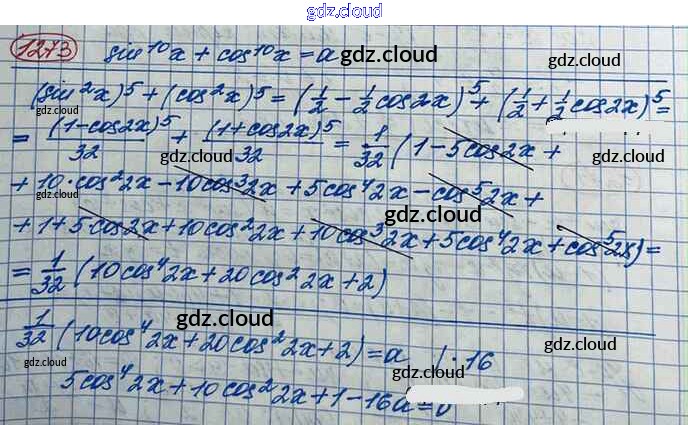 gdz.cloud
1273 sin¹⁰x + cos¹⁰x = a gdz.cloud gdz.cloud
(sin²x)⁵ + (cos²x)⁵ = (1/2 − 1/2 cos2x)⁵ + (1/2 + 1/2 cos2x)⁵ =
gdz.cloud
= (1−cos2x)⁵/32 + (1+cos2x)⁵/32 = 1/32 (1 − 5cos2x +
gdz.cloud gdz.cloud
+ 10·cos²2x − 10cos³2x + 5cos⁴2x − cos⁵2x +
gdz.cloud
+ 1 + 5cos2x + 10cos²2x + 10cos³2x + 5cos⁴2x + cos⁵2x) =
gdz.cloud
= 1/32 (10cos⁴2x + 20cos²2x + 2)
gdz.cloud gdz.cloud
1/32 (10cos⁴2x + 20cos²2x + 2) = a | · 16
gdz.cloud
5cos⁴2x + 10cos²2x + 1 − 16a = 0
gdz.cloud